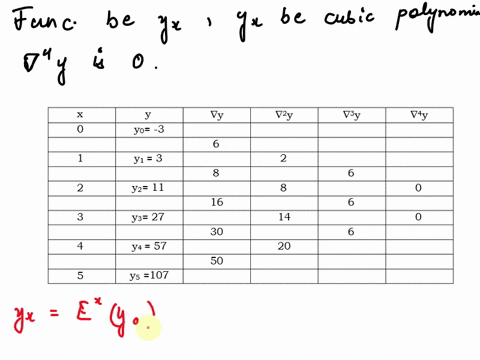 Func. be yₓ , yₓ be cubic polynomi
∇⁴y is 0.
x y ∇y ∇²y ∇³y ∇⁴y
0 y₀= -3
6
1 y₁ = 3 2
8 6
2 y₂= 11 8 0
16 6
3 y₃= 27 14 0
30 6
4 y₄ = 57 20
50
5 y₅ =107
yₓ = Eˣ (y₀)